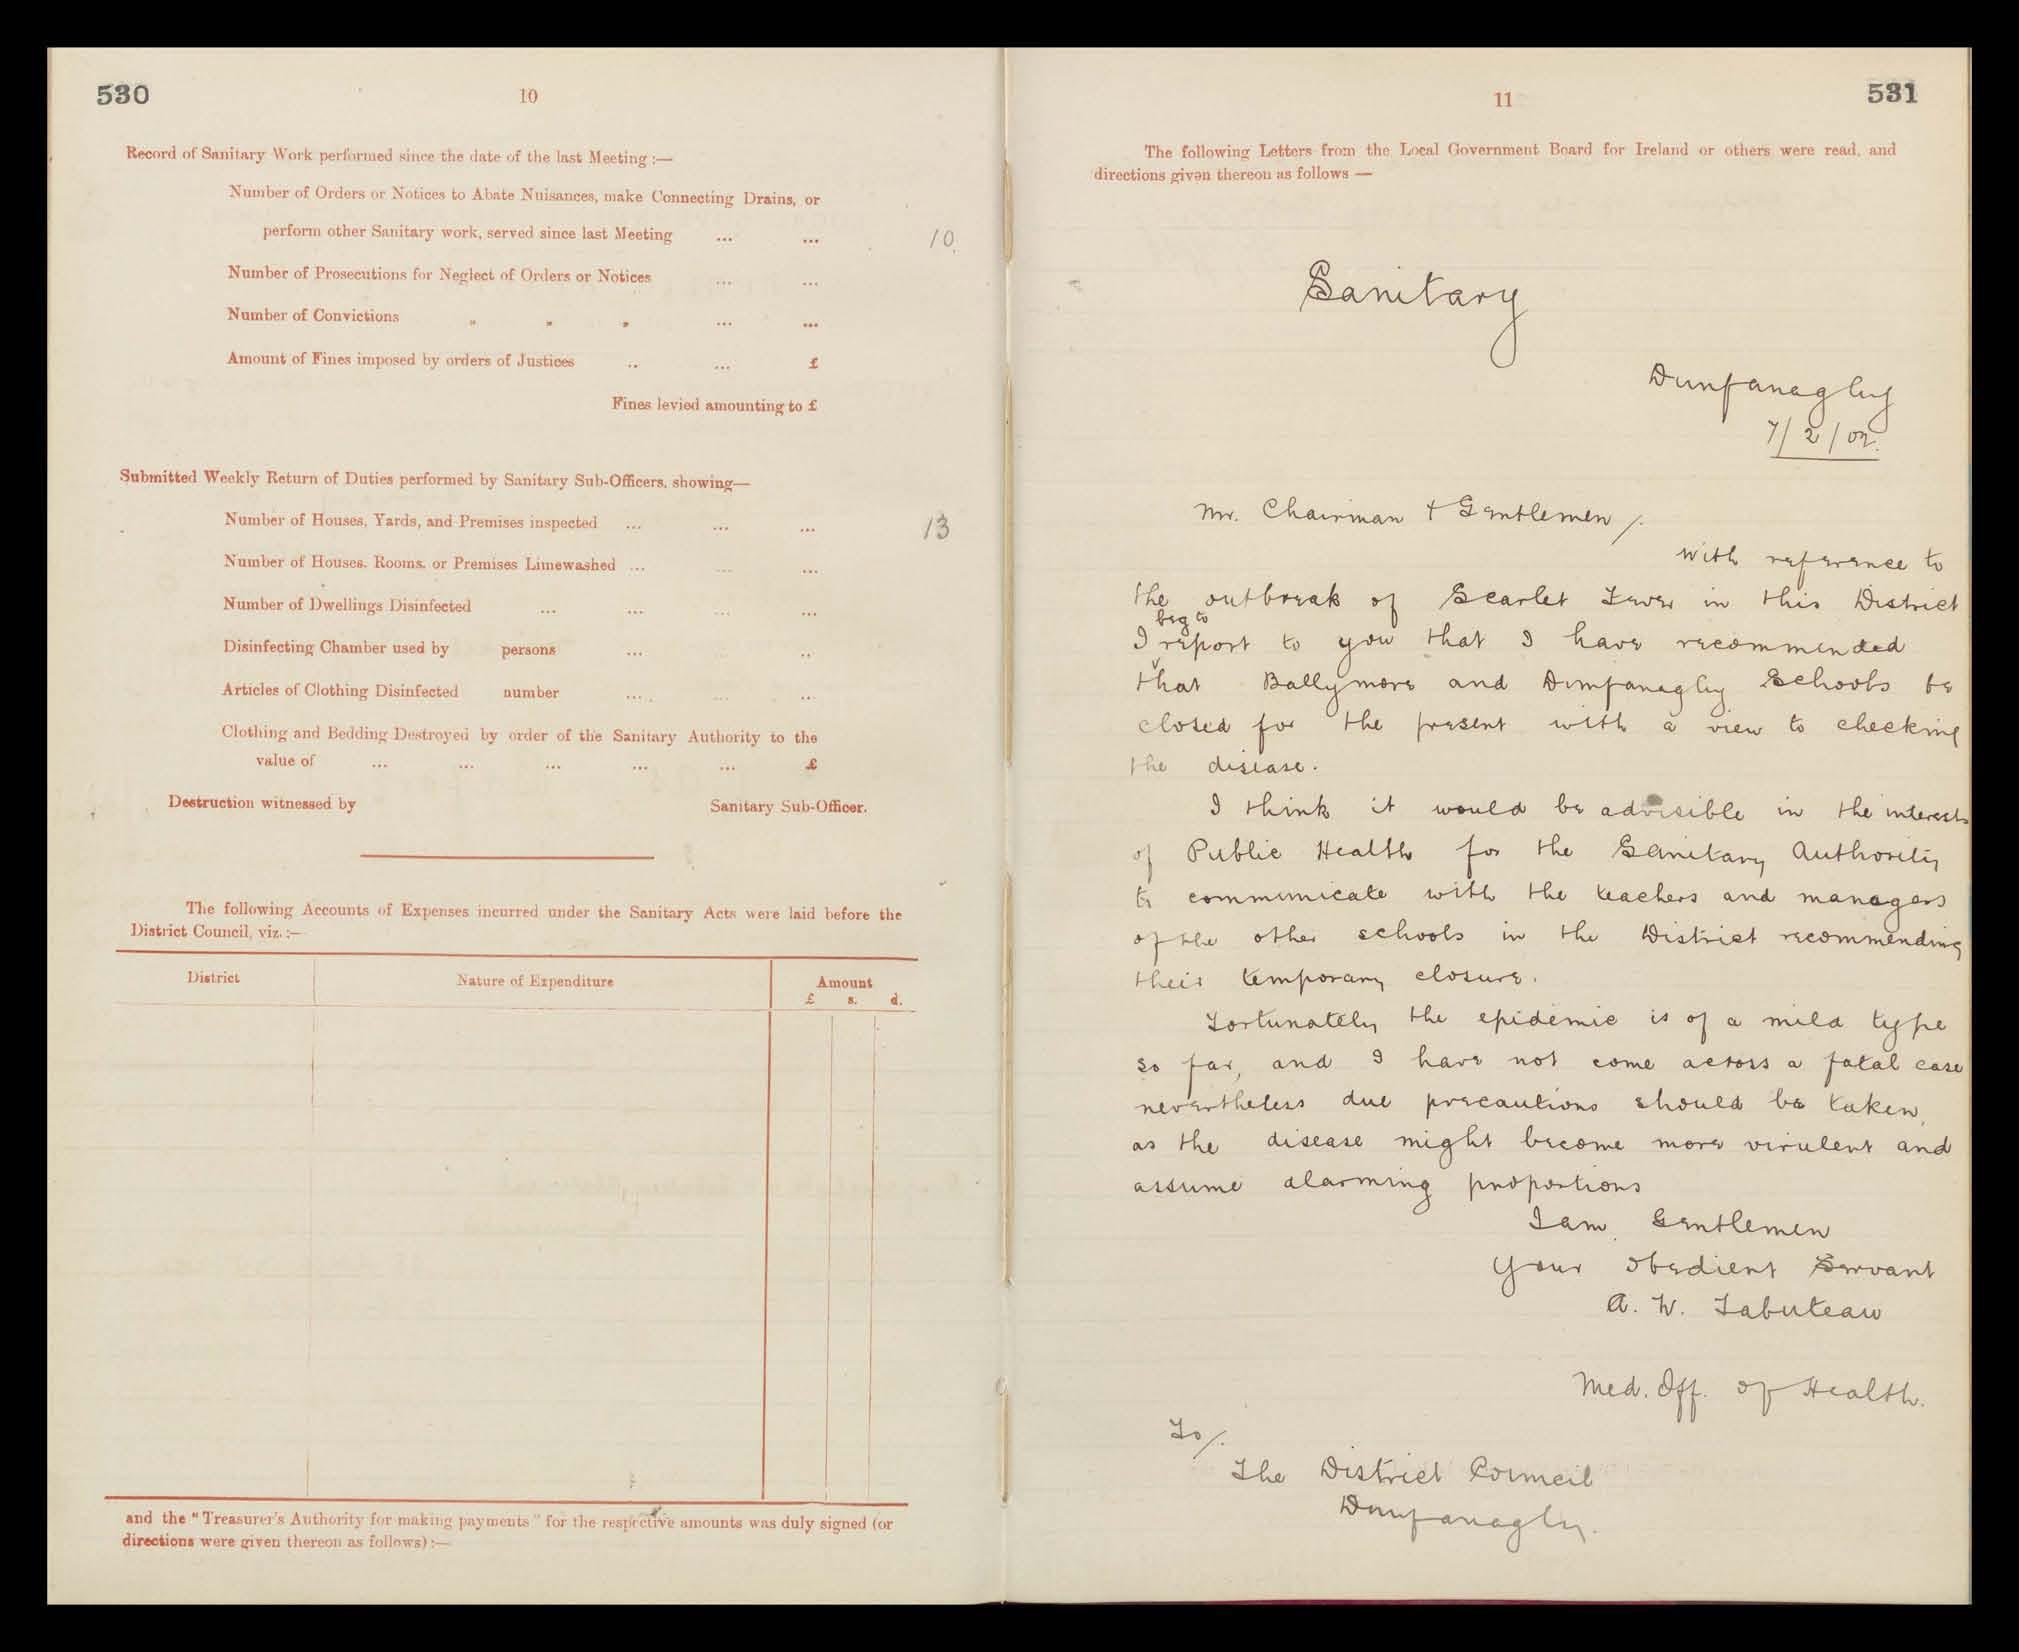 530
10
Record of Sanitary Work performed since the date of the last Meeting :—
Number of Orders or Notices to Abate Nuisances, make Connecting Drains, or
perform other Sanitary work, served since last Meeting ... ... 10.
Number of Prosecutions for Neglect of Orders or Notices ... ...
Number of Convictions " " " ... ...
Amount of Fines imposed by orders of Justices .. ... £
Fines levied amounting to £
Submitted Weekly Return of Duties performed by Sanitary Sub-Officers, showing—
Number of Houses, Yards, and Premises inspected ... ... ... 13
Number of Houses, Rooms, or Premises Limewashed ... ... ...
Number of Dwellings Disinfected ... ... ... ...
Disinfecting Chamber used by persons ... ..
Articles of Clothing Disinfected number ... ... ..
Clothing and Bedding Destroyed by order of the Sanitary Authority to the
value of ... ... ... ... ... £
Destruction witnessed by Sanitary Sub-Officer.
The following Accounts of Expenses incurred under the Sanitary Acts were laid before the
District Council, viz. :—
District Nature of Expenditure Amount
£ s. d.
and the "Treasurer's Authority for making payments" for the respective amounts was duly signed (or
directions were given thereon as follows) :—
11
531
The following Letters from the Local Government Board for Ireland or others were read, and
directions given thereon as follows —
Sanitary
Dunfanaghy
7/2/02.
Mr. Chairman + Gentlemen/.
With reference to
the outbreak of Scarlet Fever in this District
beg to
I report to you that I have recommended
that Ballymore and Dunfanaghy Schools be
closed for the present with a view to checking
the disease.
I think it would be advisible in the interests
of Public Health for the Sanitary Authority
to communicate with the teachers and managers
of the other schools in the District recommending
their temporary closure.
Fortunately the epidemic is of a mild type
so far, and I have not come across a fatal case
nevertheless due precautions should be taken,
as the disease might become more virulent and
assume alarming proportions
I am Gentlemen
Your Obedient Servant
A. W. Tabuteau
Med. Off. of Health.
To/.
The District Council
Dunfanaghy.